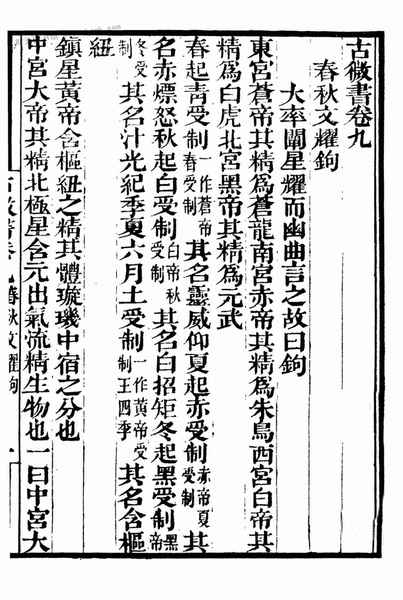 古微書卷九
春秋文耀鉤
大率闡星耀而幽曲言之故曰鉤
東宮蒼帝其精爲蒼龍南宮赤帝其精爲朱鳥西宮白帝其
精爲白虎北宮黑帝其精爲元武
春起靑受制一作蒼帝春受制其名靈威仰夏起赤受制赤帝夏受制其
名赤熛怒秋起白受制白帝秋受制其名白招矩冬起黑受制黑帝
冬受制其名汁光紀季夏六月土受制一作黃帝受制王四季其名含樞
紐
鎮星黃帝含樞紐之精其體璇璣中宿之分也
中宮大帝其精北極星含元出氣流精生物也一曰中宮大
春秋文耀鉤 一